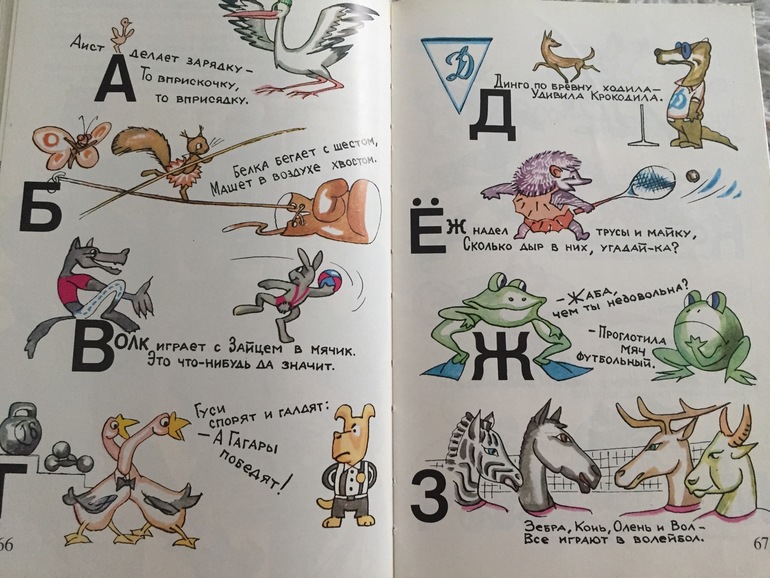 Аист делает зарядку –
То вприскочку,
то вприсядку.
А
Белка бегает с шестом,
Машет в воздухе хвостом.
Б
Волк играет с Зайцем в мячик.
Это что-нибудь да значит.
Гуси
спорят и галдят:
– А Гагары
победят!
Г
66
Д
Динго по бревну ходила –
Удивила Крокодила.
Д
Д
Ёж надел трусы и майку,
Сколько дыр в них, угадай-ка?
– Жаба,
чем ты недовольна?
– Проглотила
мяч
футбольный.
Ж
З
Зебра, Конь, Олень и Вол –
Все играют в волейбол.
67